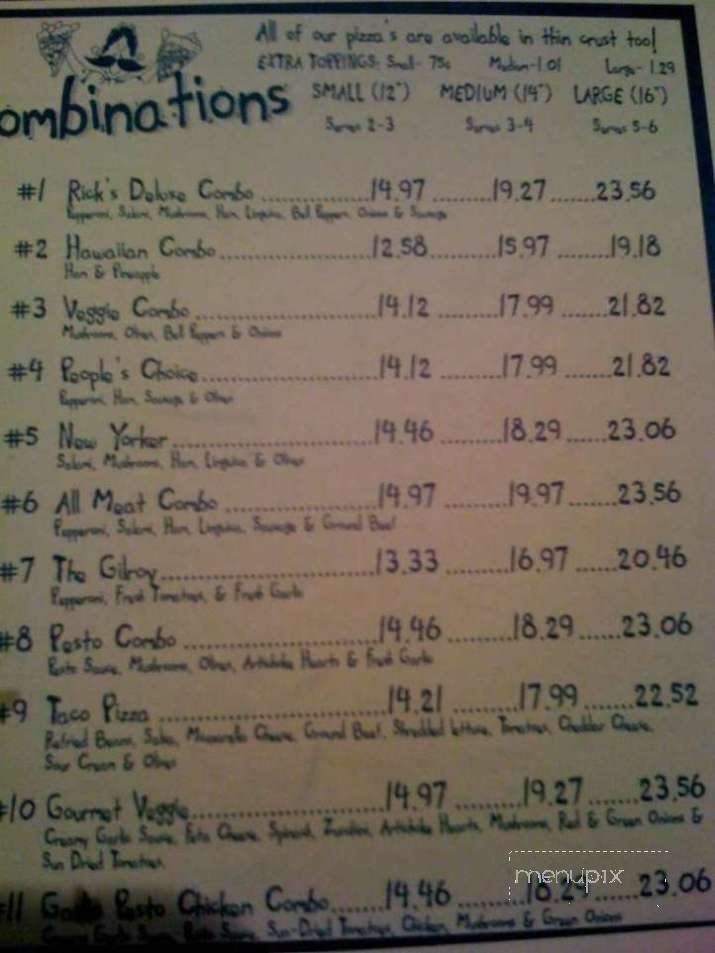 All of our pizza's are available in thin crust too!
EXTRA TOPPINGS: Small- 75¢ Medium-1.01 Large- 1.29
ombinations SMALL (12") MEDIUM (14") LARGE (16")
Serves 2-3 Serves 3-4 Serves 5-6
#1 Rick's Deluxe Combo 14.97 19.27 23.56
Pepperoni, Salami, Mushrooms, Ham, Linguica, Bell Peppers, Onions & Sausage
#2 Hawaiian Combo 12.58 15.97 19.18
Ham & Pineapple
#3 Veggie Combo 14.12 17.99 21.82
Mushrooms, Olives, Bell Peppers & Onions
#4 People's Choice 14.12 17.99 21.82
Pepperoni, Ham, Sausage & Olives
#5 New Yorker 14.46 18.29 23.06
Salami, Mushrooms, Ham, Linguica & Olives
#6 All Meat Combo 14.97 19.97 23.56
Pepperoni, Salami, Ham, Linguica, Sausage & Ground Beef
#7 The Gilroy 13.33 16.97 20.46
Pepperoni, Fresh Tomatoes, & Fresh Garlic
#8 Pesto Combo 14.46 18.29 23.06
Pesto Sauce, Mushrooms, Olives, Artichoke Hearts & Fresh Garlic
#9 Taco Pizza 14.21 17.99 22.52
Refried Beans, Salsa, Mozzarella Cheese, Ground Beef, Shredded lettuce, Tomatoes, Cheddar Cheese,
Sour Cream & Olives
#10 Gourmet Veggie 14.97 19.27 23.56
Creamy Garlic Sauce, Feta Cheese, Spinach, Zucchini, Artichoke Hearts, Mushrooms, Red & Green Onions &
Sun Dried Tomatoes
#11 Garlic Pesto Chicken Combo 14.46 18.29 23.06
Creamy Garlic Sauce, Pesto Sauce, Sun-Dried Tomatoes, Chicken, Mushrooms & Green Onions
menupix